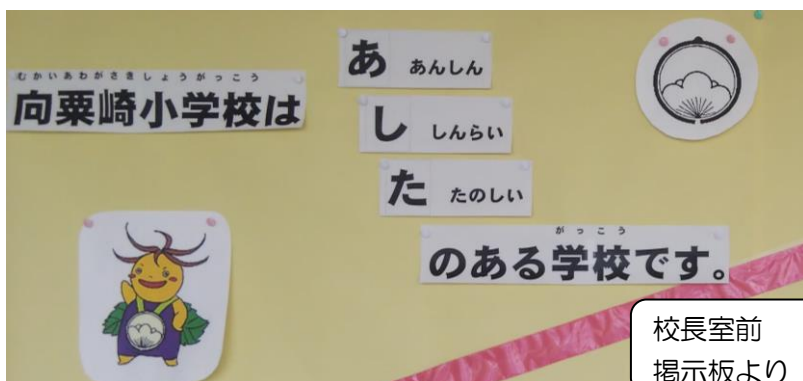 むかいあわがさきしょうがっこう
向粟崎小学校は
あ あんしん
し しんらい
た たのしい
がっこう
のある学校です。
校長室前
掲示板より